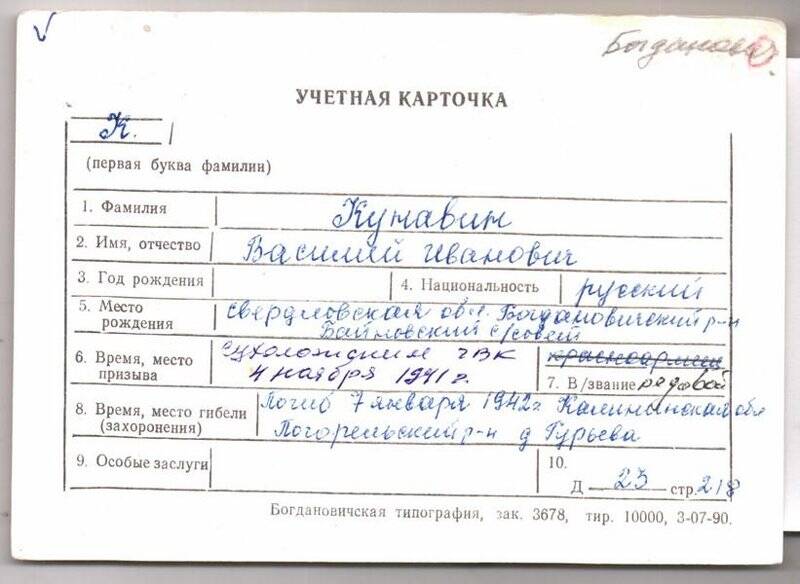 Богданови
УЧЕТНАЯ КАРТОЧКА
К.
(первая буква фамилии)
1. Фамилия Кунавин
2. Имя, отчество Василий Иванович
3. Год рождения 4. Национальность русский
5. Место рождения Свердловская обл. Богдановичский р-н
Байновский с/совет
6. Время, место призыва Сухоложским ГВК
4 ноября 1941 г.
красноармеец
7. В/звание рядовой
8. Время, место гибели (захоронения) Погиб 7 января 1942г Калининская обл
Погорельский р-н д Гурьева
9. Особые заслуги
10.
Д 23 стр. 218
Богдановичская типография, зак. 3678, тир. 10000, 3-07-90.